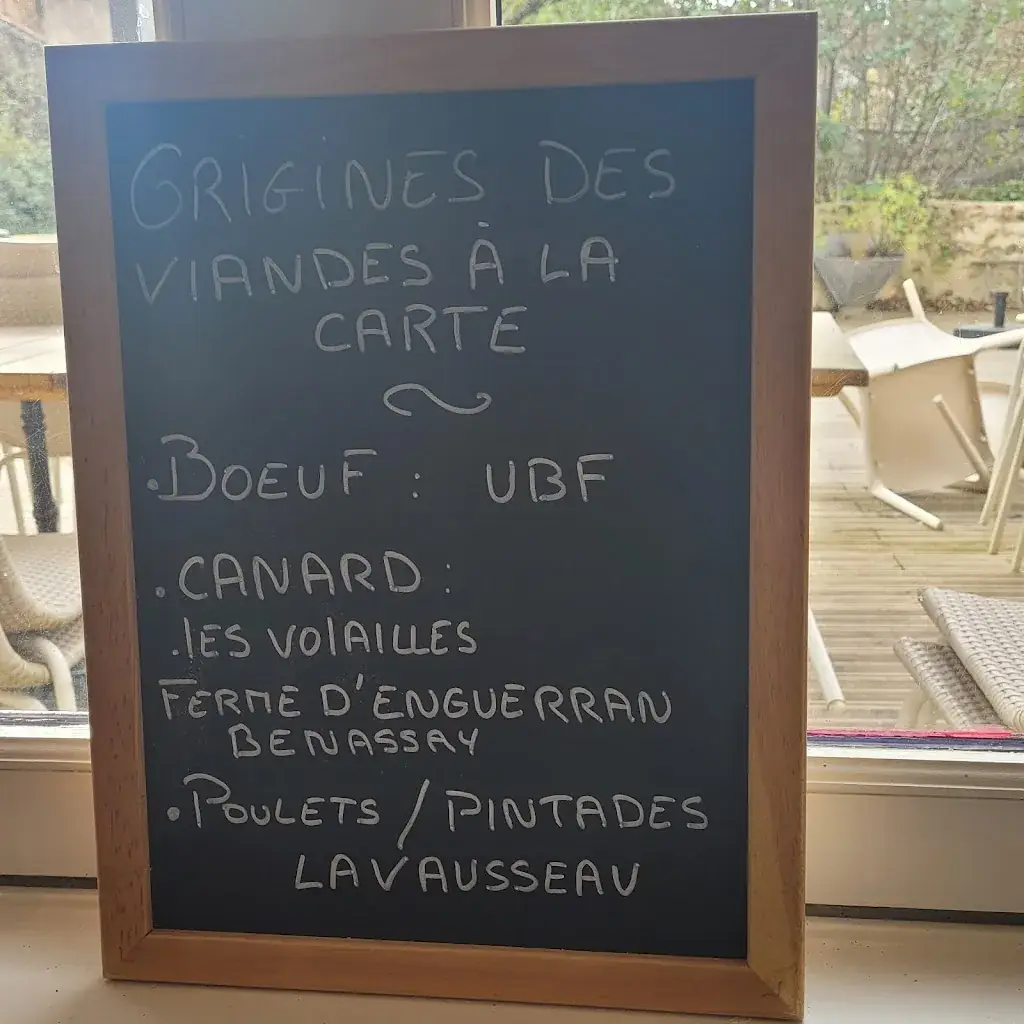 ORIGINES DES
VIANDES À LA
CARTE
~
• BOEUF : UBF
• CANARD :
. lES VOlAILLES
FERME D'ENGUERRAN
BENASSAY
• POULETS / PINTADES
LAVAUSSEAU